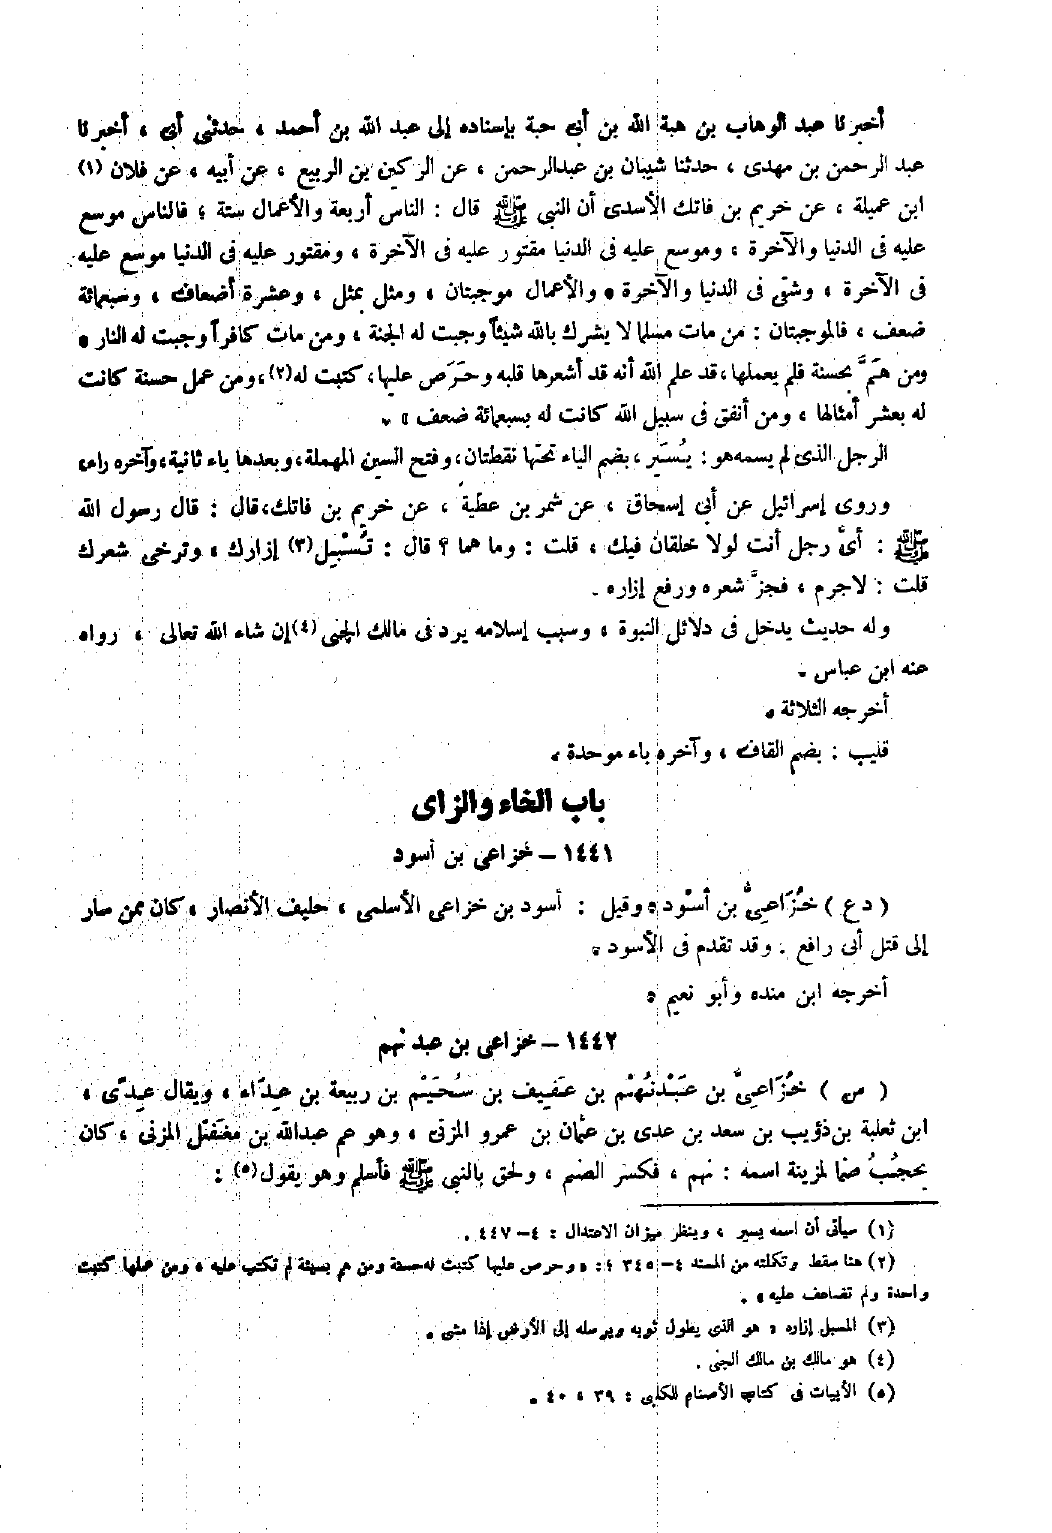 أخبرنا عبد الوهاب بن هبة الله بن أبي حبة بإسناده إلى عبد الله بن أحمد ، حدثني أبي ، أخبرنا
عبد الرحمن بن مهدى ، حدثنا شيبان بن عبدالرحمن ، عن الركين بن الربيع ، عن أبيه ، عن فلان (١)
ابن عميلة ، عن خريم بن فاتك الأسدى أن النبي ﷺ قال : الناس أربعة والأعمال ستة ؛ فالناس موسع
عليه فى الدنيا والآخرة ، وموسع عليه فى الدنيا مقتور عليه فى الآخرة ، ومقتور عليه فى الدنيا موسع عليه
فى الآخرة ، وشقى فى الدنيا والآخرة . والأعمال موجبتان ، ومثل بمثل ، وعشرة أضعاف ، وسبعمائة
ضعف ، فالموجبتان : من مات مسلما لا يشرك بالله شيئاً وجبت له الجنة ، ومن مات كافراً وجبت له النار .
ومن هَمَّ بحسنة فلم يعملها، قد علم الله أنه قد أشعرها قلبه وحَرَص عليها، كتبت له(٢)، ومن عمل حسنة كانت
له بعشر أمثالها ، ومن أنفق فى سبيل الله كانت له بسبعمائة ضعف » .
الرجل الذى لم يسمه هو : يُسَير ، بضم الياء تحتها نقطتان، وفتح السين المهملة، وبعدها ياء ثانية، وآخره راء.
وروى إسرائيل عن أبي إسحاق ، عن شمر بن عطية ، عن خريم بن فاتك، قال : قال رسول الله
ﷺ : أىَّ رجل أنت لولا خلقان فيك ، قلت : وما هما ؟ قال : تُسْبِيل(٣) إزارك ، وترخى شعرك
قلت : لاجرم ، فجزَّ شعره ورفع إزاره .
وله حديث يدخل فى دلائل النبوة ، وسبب إسلامه يرد فى مالك الجنى (٤) إن شاء الله تعالى ، رواه
عنه ابن عباس .
أخرجه الثلاثة .
قليب : بضم القاف ، وآخره باء موحدة .
باب الخاء والزاى
١٤٤١ – خزاعى بن أسود
( د ع ) خُزَاعىُّ بن أسْود . وقيل : أسود بن خزاعى الأسلمى ، حليف الأنصار ، كان ممن سار
إلى قتل أبى رافع . وقد تقدم فى الأسود .
أخرجه ابن منده وأبو نعيم .
١٤٤٢ – خزاعى بن عبد نهم
( س ) خُزَاعىُّ بن عَبْدنُهْم بن عَفيف بن سُحَيْم بن ربيعة بن عِدَاء ، ويقال عِدَى ،
ابن ثعلبة بن ذؤيب بن سعد بن عدى بن عثمان بن عمرو المزنى ، وهو عم عبدالله بن مغفَّل المزنى ، كان
يحجُبُ صنما لمزينة اسمه : نهم ، فكسر الصنم ، ولحق بالنبي ﷺ فأسلم وهو يقول(٥) :
(١) سيأتى أن اسمه يسير ، وينظر ميزان الاعتدال : ٤ – ٤٤٧ .
(٢) هنا سقط وتكملته من المسند ٤ – ٣٤٥ : « وحرص عليها كتبت له حسنة ومن هم بسيئة لم تكتب عليه ، ومن عملها كتبت
واحدة ولم تضاعف عليه » .
(٣) المسبل إزاره : هو الذى يطول ثوبه ويرسله إلى الأرض إذا مشى .
(٤) هو مالك بن مالك الجنى .
(٥) الأبيات فى كتاب الأصنام للكلبى : ٣٩ ، ٤٠ .